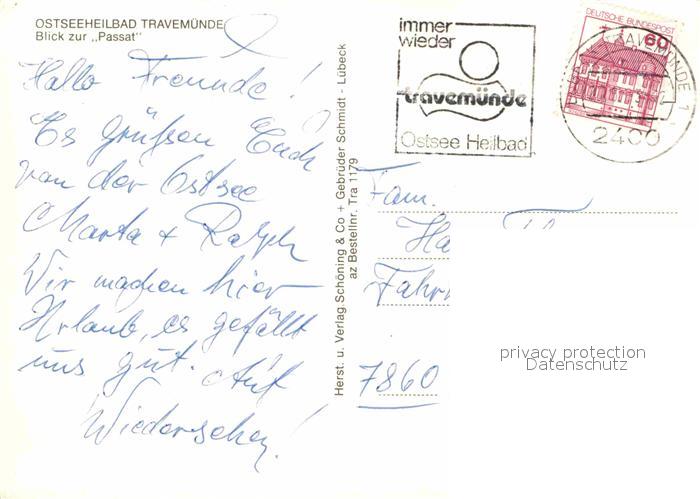 OSTSEEHEILBAD TRAVEMÜNDE
Blick zur „Passat“
Hallo Freunde!
Es grüßen Euch
von der Ostsee
Marta + Ralph
Wir machen hier
Urlaub, es gefällt
uns gut. Auf
Wiedersehen!
Herst. u. Verlag Schöning & Co + Gebrüder Schmidt - Lübeck
az Bestellnr. Tra 1179
immer
wieder
travemünde
Ostsee Heilbad
DEUTSCHE BUNDESPOST
60
TRAVEMÜNDE 1
2400
Fam.
Ha
Fahr
7860
privacy protection
Datenschutz